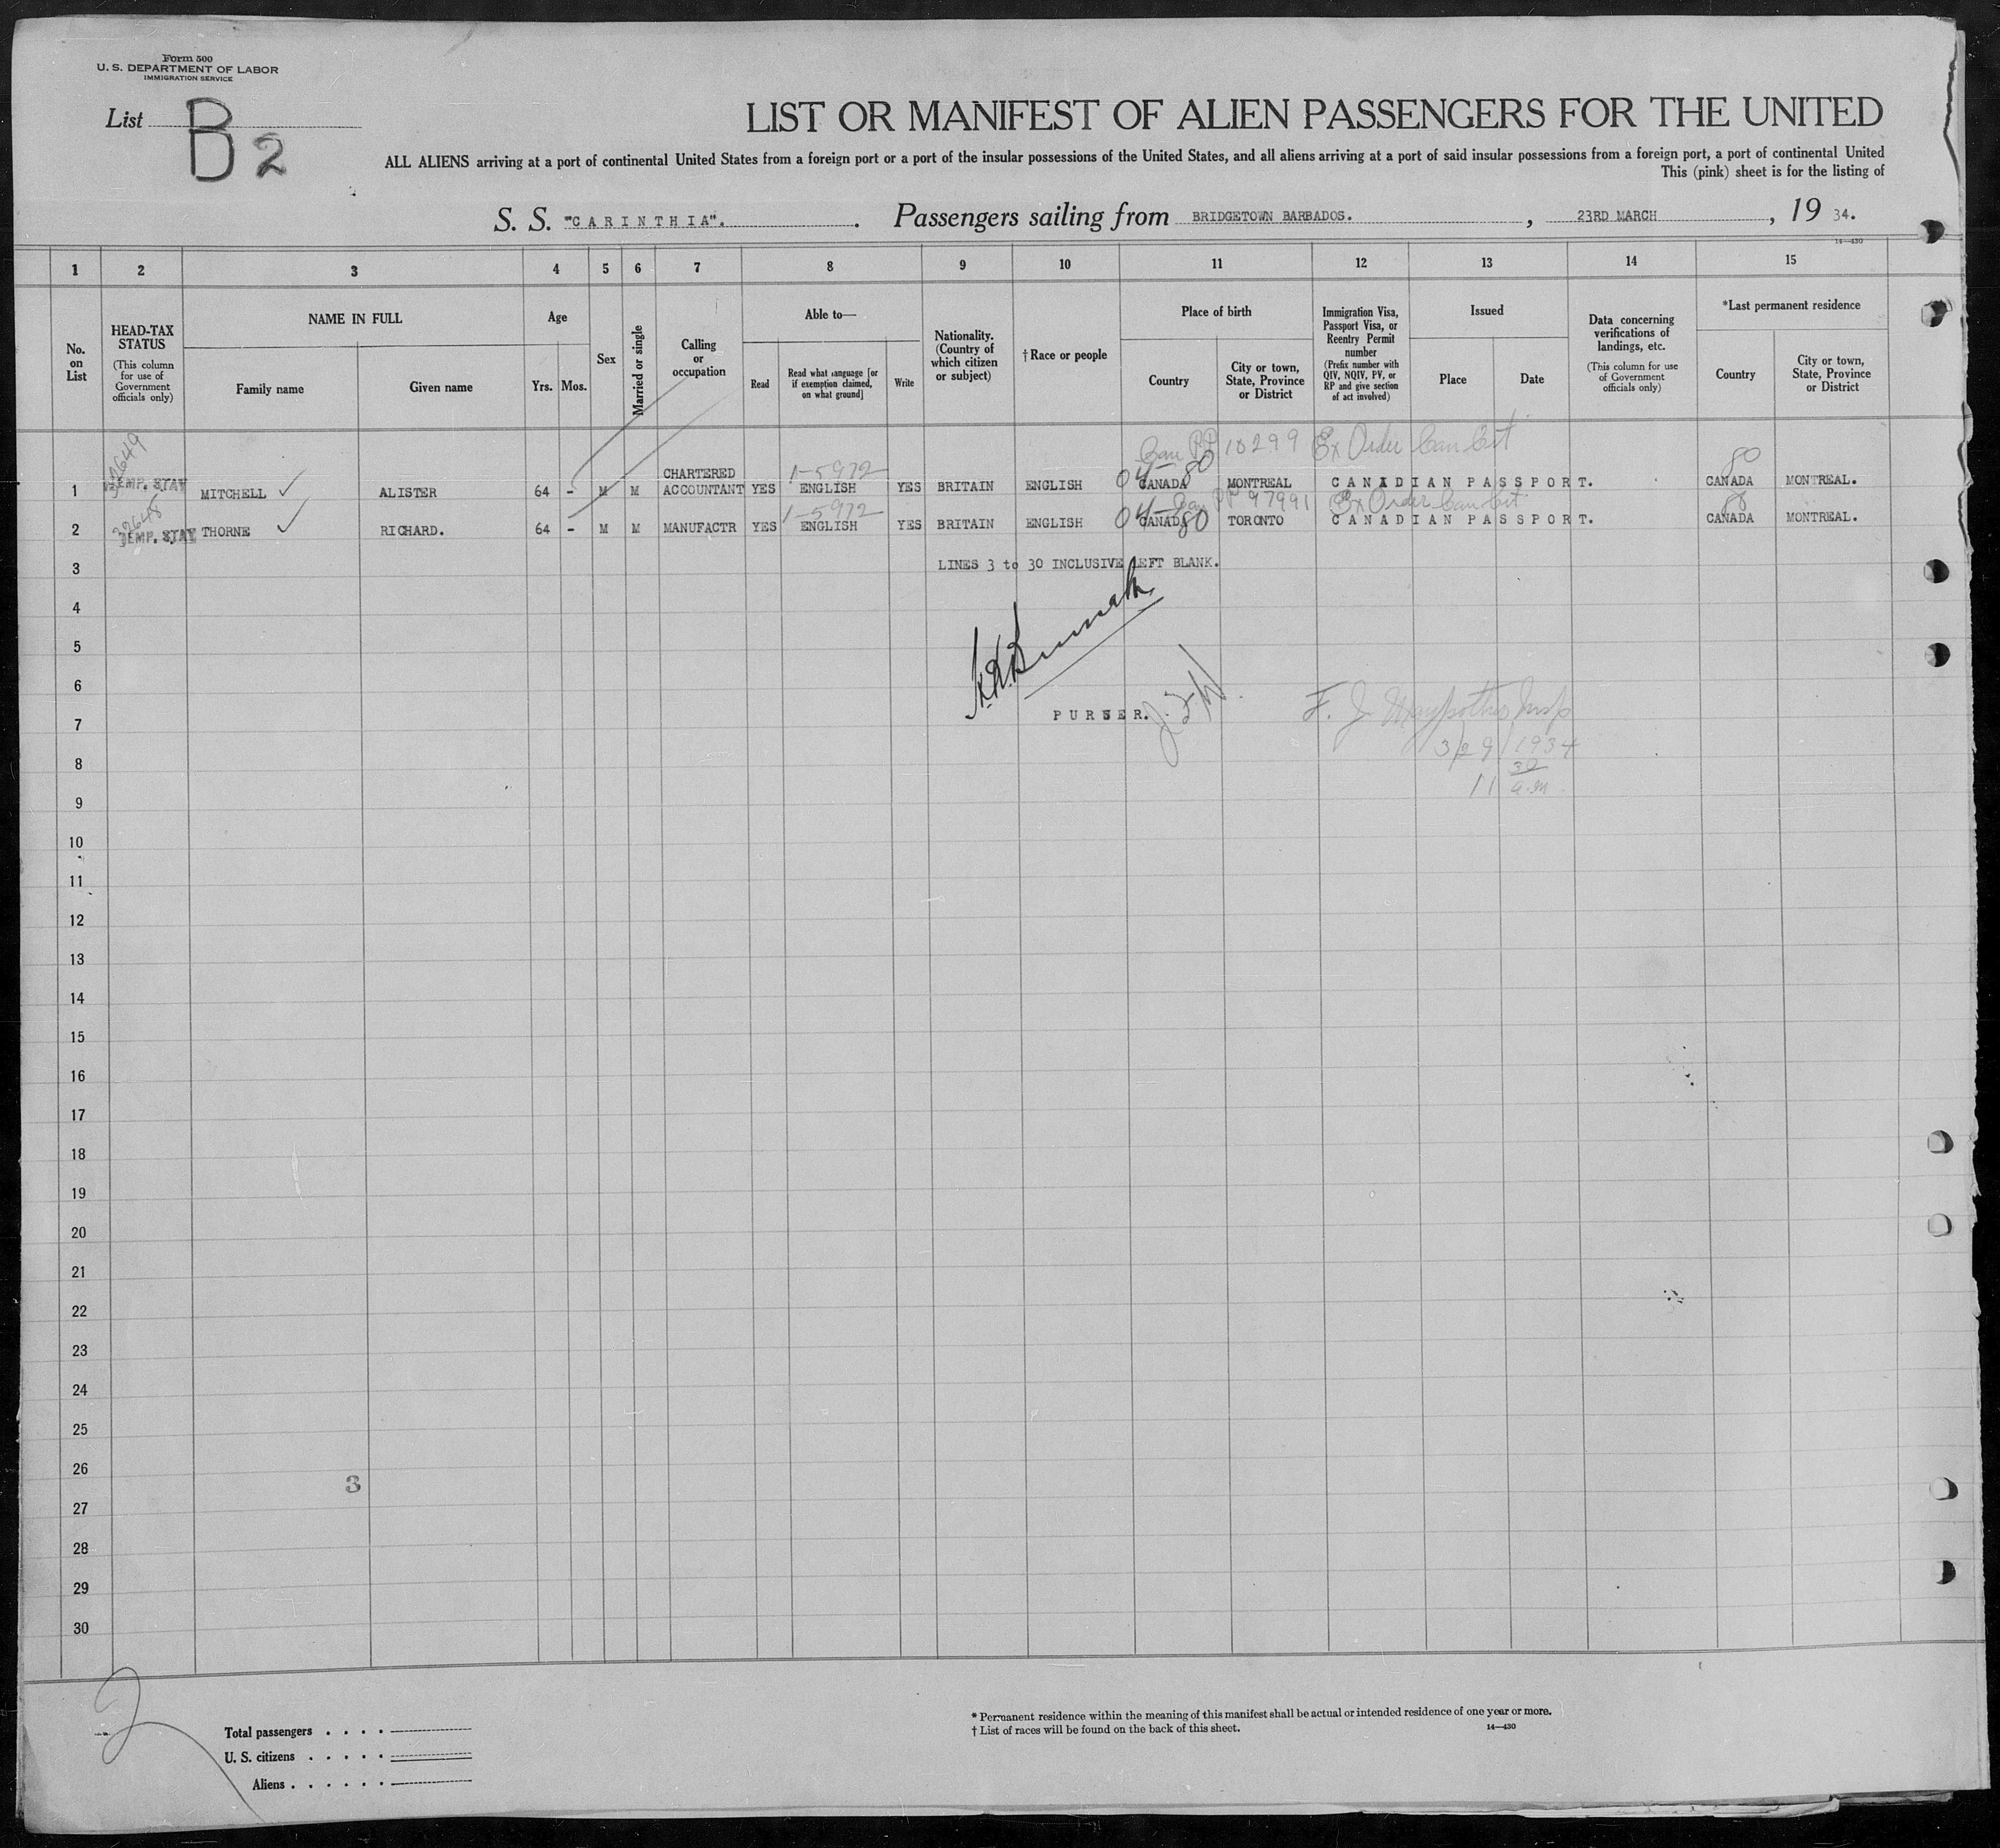 Form 500
U. S. DEPARTMENT OF LABOR
IMMIGRATION SERVICE
List B2
LIST OR MANIFEST OF ALIEN PASSENGERS FOR THE UNITED
ALL ALIENS arriving at a port of continental United States from a foreign port or a port of the insular possessions of the United States, and all aliens arriving at a port of said insular possessions from a foreign port, a port of continental United
This (pink) sheet is for the listing of
S. S. "CARINTHIA". Passengers sailing from BRIDGETOWN BARBADOS. , 23RD MARCH , 19 34.
14—430
1 2 3 4 5 6 7 8 9 10 11 12 13 14 15
No. on List
HEAD-TAX STATUS
(This column for use of Government officials only)
NAME IN FULL
Family name
Given name
Age
Yrs. Mos.
Sex
Married or single
Calling or occupation
Able to—
Read
Read what language [or if exemption claimed, on what ground]
Write
Nationality. (Country of which citizen or subject)
†Race or people
Place of birth
Country
City or town, State, Province or District
Immigration Visa, Passport Visa, or Reentry Permit number
(Prefix number with QIV, NQIV, PV, or RP and give section of act involved)
Issued
Place
Date
Data concerning verifications of landings, etc.
(This column for use of Government officials only)
*Last permanent residence
Country
City or town, State, Province or District
Can PP 10299 Ex Order Can Cit
32649 1-5972 04-80 80
1 TEMP. STAY MITCHELL ALISTER 64 - M M CHARTERED ACCOUNTANT YES ENGLISH YES BRITAIN ENGLISH CANADA MONTREAL CANADIAN PASSPORT. CANADA MONTREAL.
32648 1-5972 04- Can PP 97991 Ex Order Can Cit 80
2 TEMP. STAY THORNE RICHARD. 64 - M M MANUFACTR YES ENGLISH YES BRITAIN ENGLISH CANADA 80 TORONTO CANADIAN PASSPORT. CANADA MONTREAL.
3 LINES 3 to 30 INCLUSIVE LEFT BLANK.
4
5
6
7 PURSER.
3/29/1934
8
11 30 a.m.
9
10
11
12
13
14
15
16
17
18
19
20
21
22
23
24
25
26
3
27
28
29
30
2
Total passengers . . . .
U. S. citizens . . . . .
Aliens . . . . . .
* Permanent residence within the meaning of this manifest shall be actual or intended residence of one year or more.
† List of races will be found on the back of this sheet.
14—430